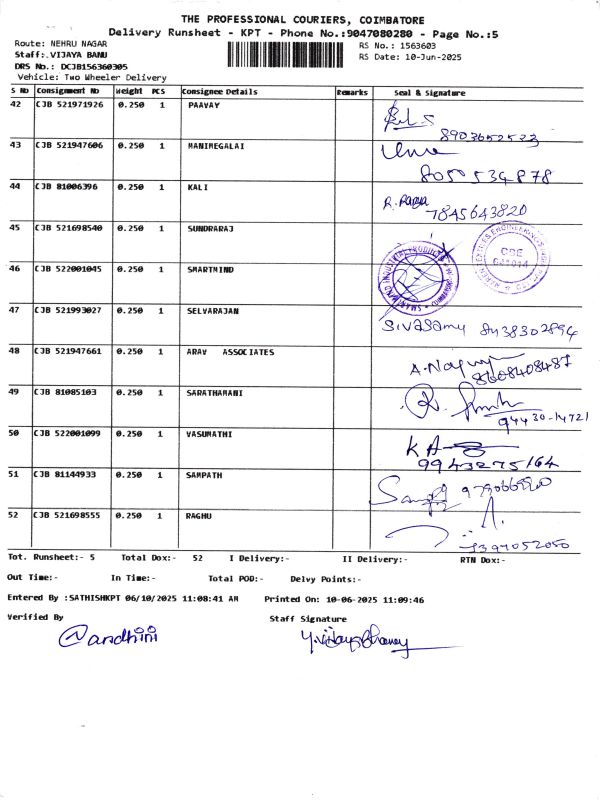 THE PROFESSIONAL COURIERS, COIMBATORE
Delivery Runsheet - KPT - Phone No.:9047080280 - Page No.:5
Route: NEHRU NAGAR
RS No.: 1563603
Staff:.VIJAYA BANU
RS Date: 10-Jun-2025
DRS No.: DCJB156360305
Vehicle: Two Wheeler Delivery
S No Consignment No Weight PCS Consignee Details Remarks Seal & Signature
42 CJB 521971926 0.250 1 PAAVAY
8903652533
43 CJB 521947606 0.250 1 MANIMEGALAI
Uma
8050534878
44 CJB 81006396 0.250 1 KALI
R. Papa
7845643820
45 CJB 521698540 0.250 1 SUNDRARAJ
CBE
641014
46 CJB 522001045 0.250 1 SMARTMIND
47 CJB 521993027 0.250 1 SELVARAJAN
Sivasamy 8438302894
48 CJB 521947661 0.250 1 ARAV ASSOCIATES
8608408487
49 CJB 81085103 0.250 1 SARATHAMANI
94430-14721
50 CJB 522001099 0.250 1 VASUMATHI
KA
9943275164
51 CJB 81144933 0.250 1 SAMPATH
52 CJB 521698555 0.250 1 RAGHU
Tot. Runsheet:- 5 Total Dox:- 52 I Delivery:- II Delivery:- RTN Dox:-
Out Time:- In Time:- Total POD:- Delvy Points:-
Entered By :SATHISHKPT 06/10/2025 11:08:41 AM Printed On: 10-06-2025 11:09:46
Verified By Staff Signature
Nandhini